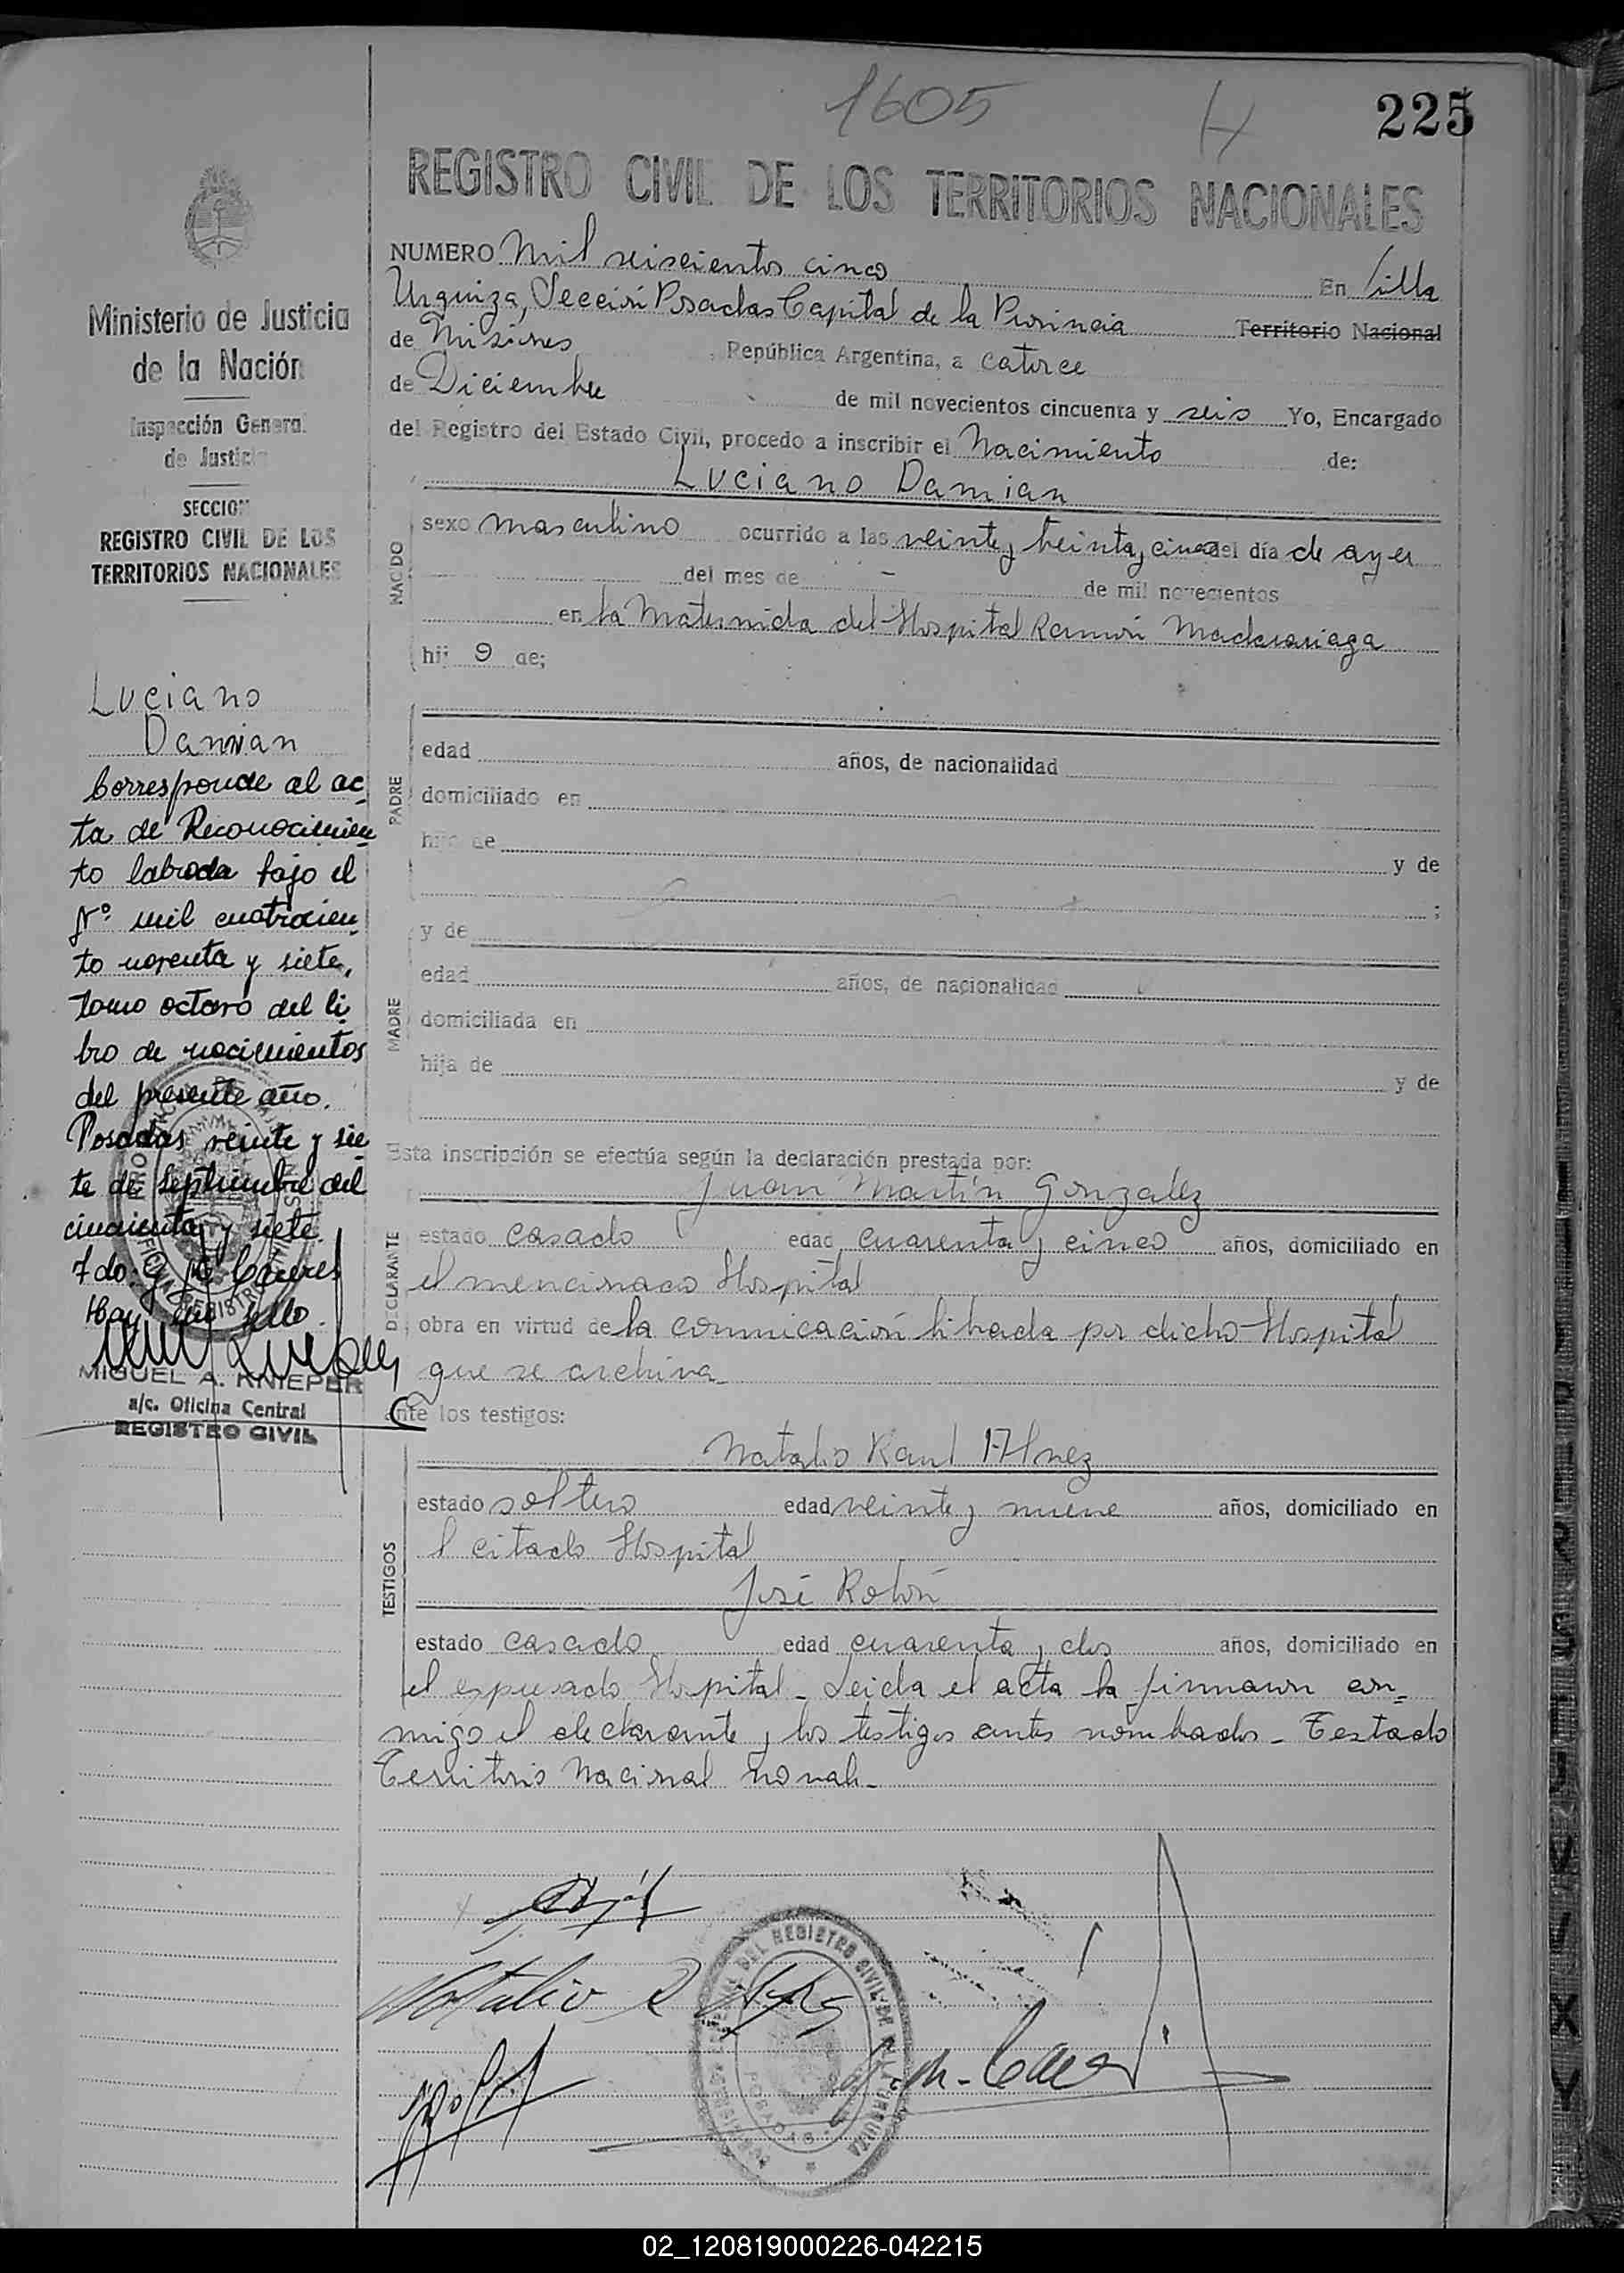 1605
H
225
REGISTRO CIVIL DE LOS TERRITORIOS NACIONALES
Ministerio de Justicia
de la Nación
Inspección General
de Justicia
SECCION
REGISTRO CIVIL DE LOS
TERRITORIOS NACIONALES
Luciano
Damian
Corresponde al ac-
ta de Reconocimien-
to labrada bajo el
Nº mil cuatrocien-
to noventa y siete,
tomo octavo del li-
bro de nacimientos
del presente año.
Posadas veinte y sie-
te de Septiembre del
cincuenta y siete.
Fdo. G. M. Caceres
Hay un sello.
MIGUEL A. KNIEPER
a/c. Oficina Central
REGISTRO CIVIL
NUMERO Mil seiscientos cinco En Villa
Urquiza, Sección Posadas Capital de la Provincia Territorio Nacional
de Misiones, República Argentina, a catorce
de Diciembre de mil novecientos cincuenta y seis Yo, Encargado
del Registro del Estado Civil, procedo a inscribir el Nacimiento de:
Luciano Damian
NACIDO
sexo masculino ocurrido a las veinte y treinta y cinco del día de ayer
del mes de - de mil novecientos
en la Maternida del Hospital Ramón Madariaga
hij o de;
PADRE
edad años, de nacionalidad
domiciliado en
hijo de y de
;
y de
MADRE
edad años, de nacionalidad
domiciliada en
hija de y de
Esta inscripción se efectúa según la declaración prestada por:
Juan Martín Gonzalez
DECLARANTE
estado casado edad cuarenta y cinco años, domiciliado en
el mencionado Hospital
obra en virtud de la comunicación librada por dicho Hospital
que se archiva_
ante los testigos:
Natalio Raul
TESTIGOS
estado soltero edad veinte y nueve años, domiciliado en
el citado Hospital
José Rolón
estado casado edad cuarenta y dos años, domiciliado en
el expresado Hospital_ Leida el acta la firmaron con-
migo el declarante y los testigos antes nombrados_ Testado
Territorio Nacional no vale_
Natalio R
G. M. Caceres
DEL REGISTRO CIVIL DE VILLA URQUIZA
POSADAS
02_120819000226-042215